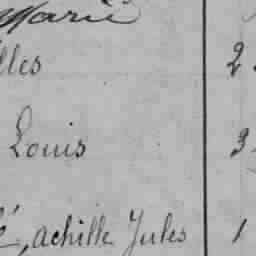 Marie
lles 2
Louis 3
é, achille Jules 1